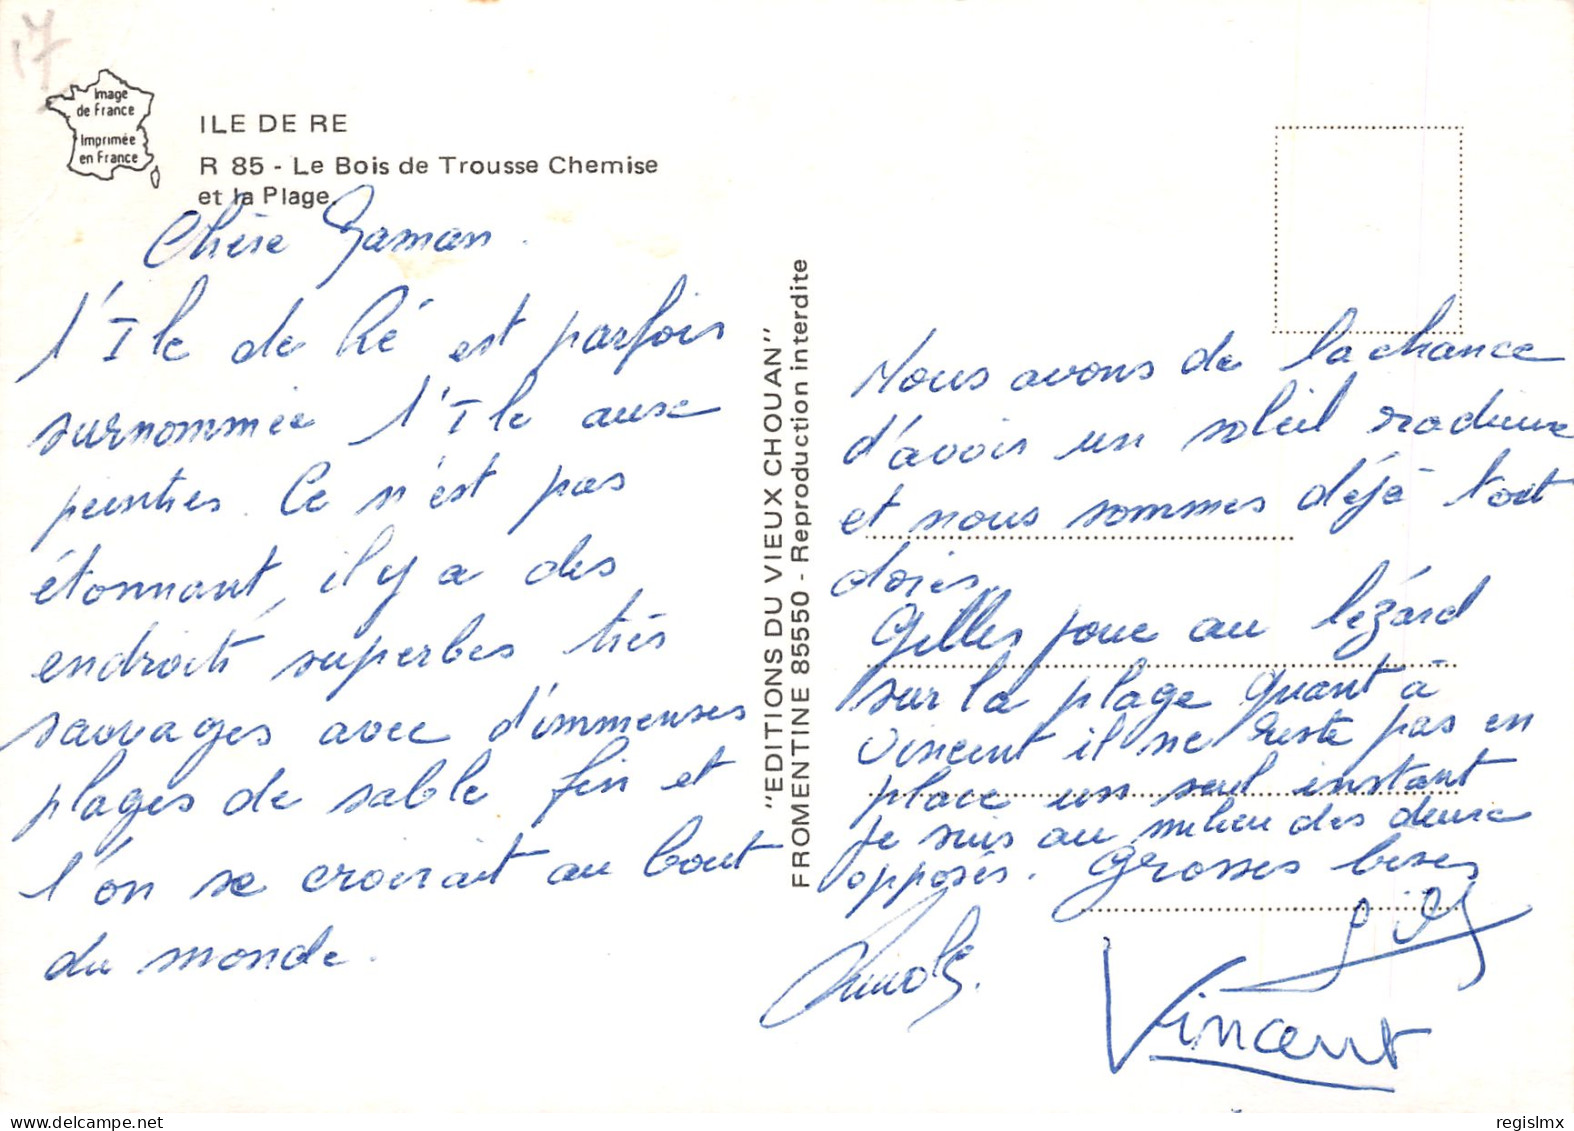 17
Image
de France
Imprimée
en France
ILE DE RE
R 85 - Le Bois de Trousse Chemise
et la Plage.
Chère Maman.
l'Ile de Ré est parfois
surnommée l'Ile aux
peintres. Ce n'est pas
étonnant, il y a des
endroits superbes très
sauvages avec d'immenses
plages de sable fin et
l'on se croirait au bout
du monde.
"EDITIONS DU VIEUX CHOUAN"
FROMENTINE 85550 - Reproduction interdite
Nous avons de la chance
d'avoir un soleil radieux
et nous sommes déjà tout
dorés.
Gilles joue au lézard
sur la plage Quant à
Vincent il ne reste pas en
place un seul instant
Je suis au milieu des deux
opposés. Grosses bises
Vincent
regislmx